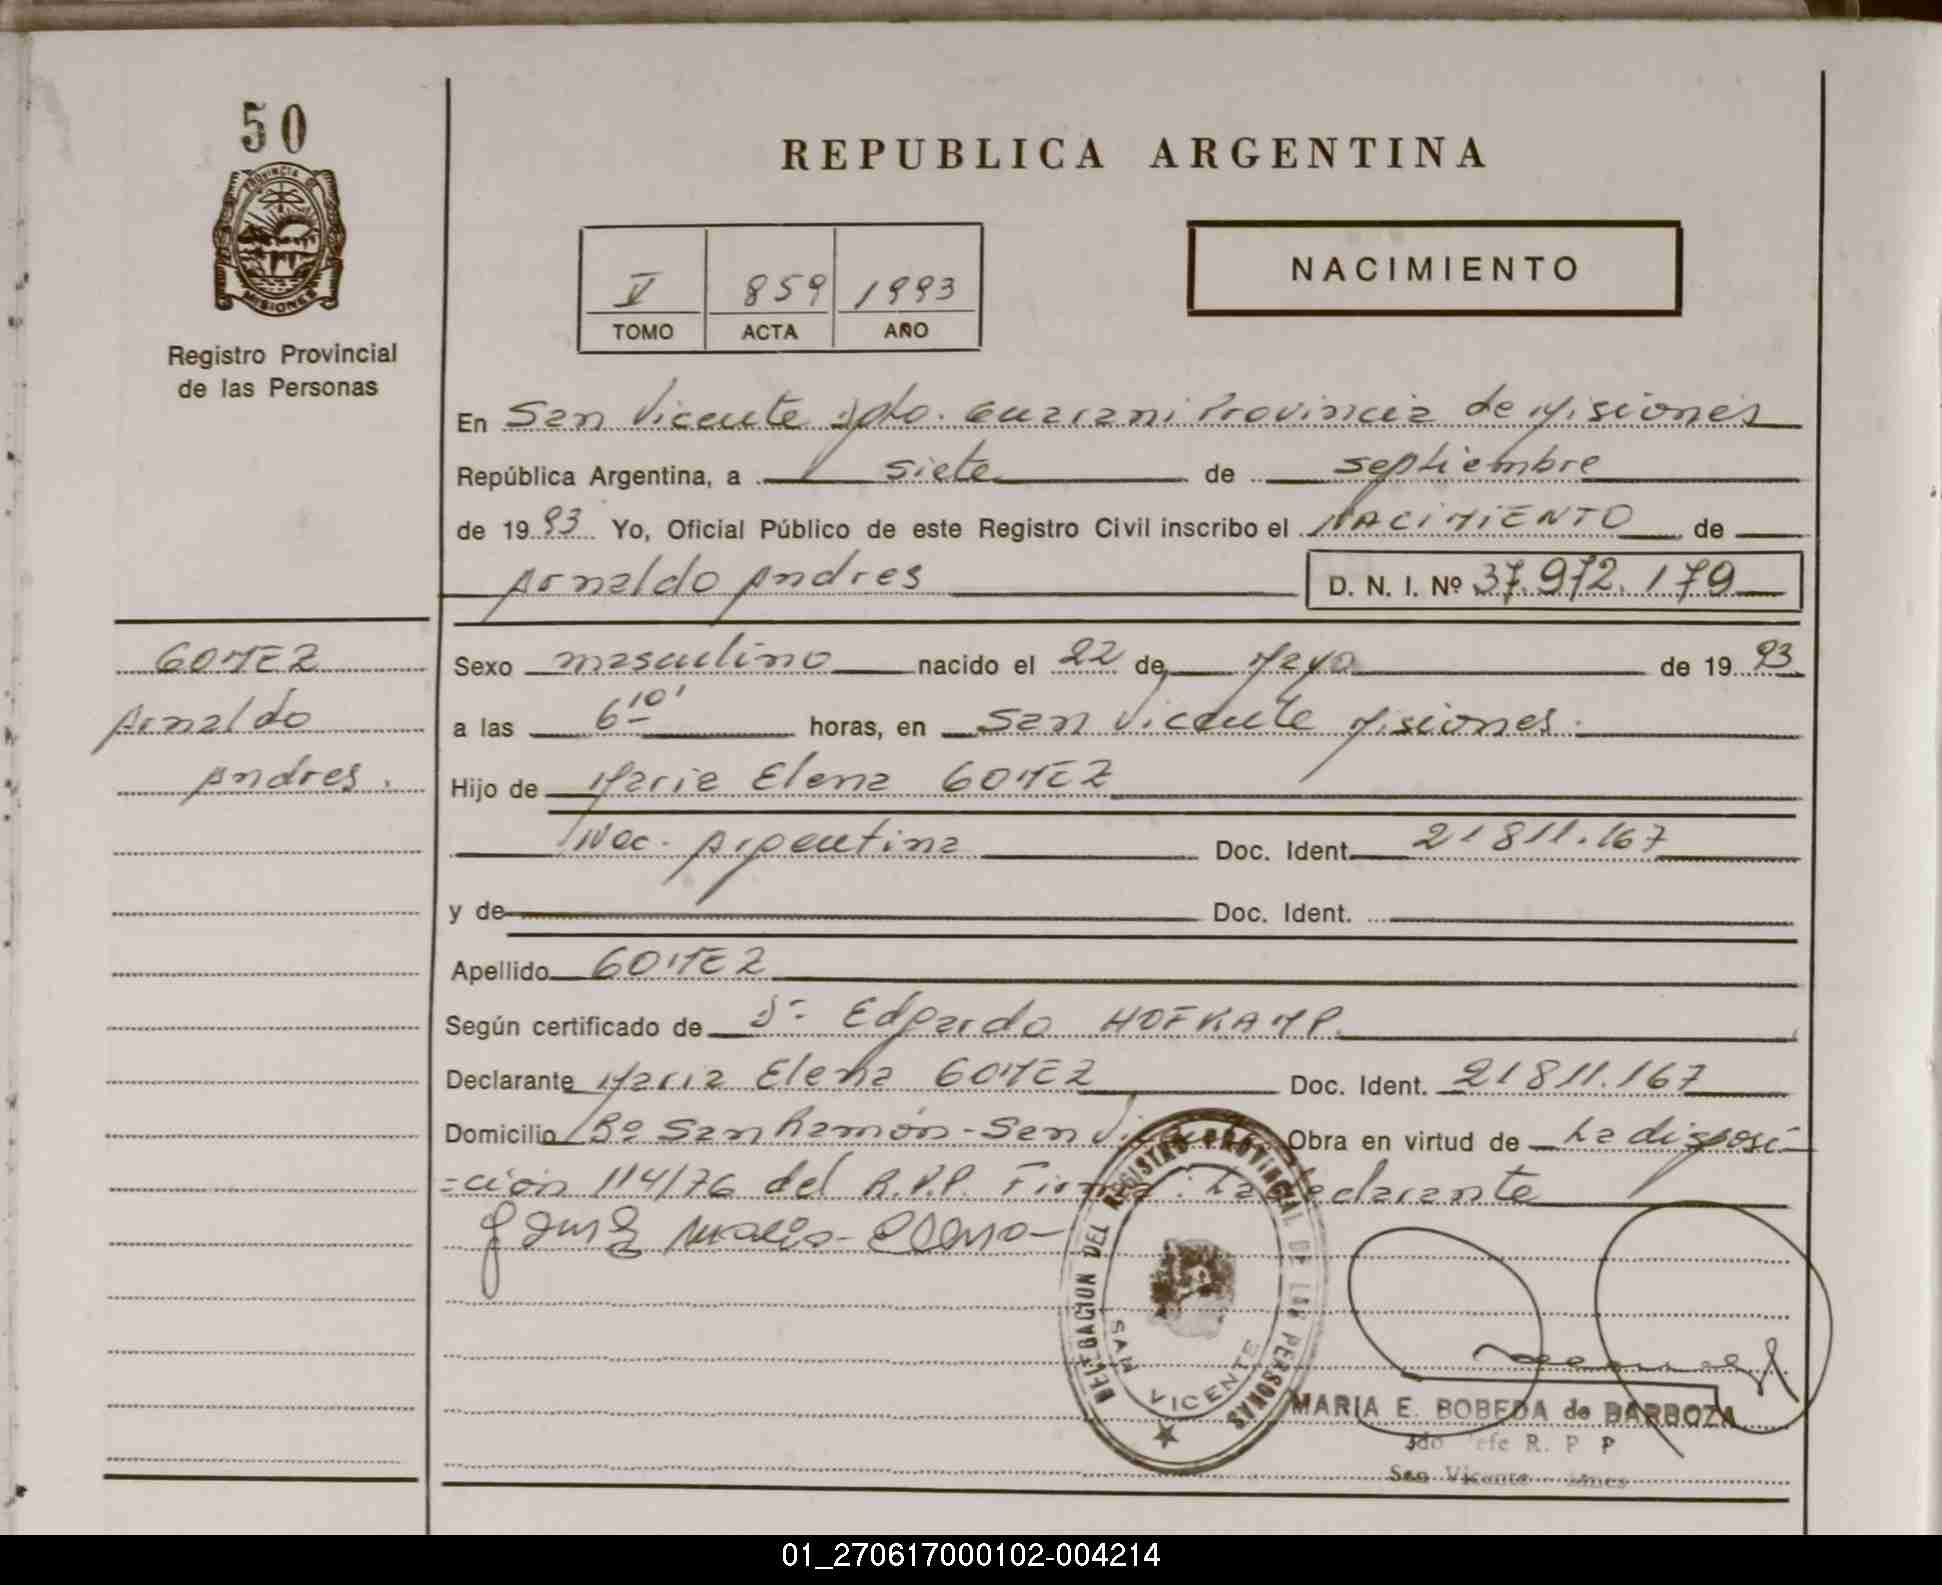 50
REPUBLICA ARGENTINA
PROVINCIA DE
MISIONES
Registro Provincial
de las Personas
V 859 1993
TOMO ACTA AÑO
NACIMIENTO
En San Vicente Dpto. Guarani Provincia de Misiones
República Argentina, a siete de septiembre
de 1993 Yo, Oficial Público de este Registro Civil inscribo el NACIMIENTO de
Arnaldo Andres D. N. I. Nº 37.972.179
GOMEZ
Arnaldo
Andres.
Sexo masculino nacido el 22 de Mayo de 1993
a las 6 10' horas, en San Vicente Misiones.
Hijo de Maria Elena GOMEZ
Nac. Argentina Doc. Ident. 21811.167
y de Doc. Ident.
Apellido GOMEZ
Según certificado de Dr Edgardo HOFKAMP.
Declarante Maria Elena GOMEZ Doc. Ident. 21811.167
Domicilio Bº San Ramón - San Vicente Obra en virtud de La disposi-
=ción 114/76 del R.P.P. Firma: La declarante
Gomez Maria Elena
DELEGACION DEL REGISTRO PROVINCIAL DE LAS PERSONAS
SAN VICENTE
MARIA E. BOBEDA de BARBOZA
R. P P
San Vicente
01_270617000102-004214